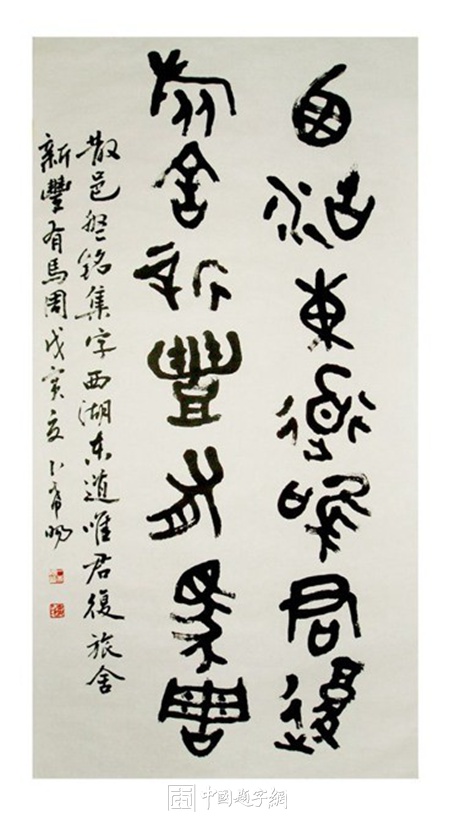 西湖東道唯君復
旅舍新豐有馬周
散邑盤銘集字西湖东道唯君復旅舍
新豐有馬周戊寅夏卜希暘
中國題字網